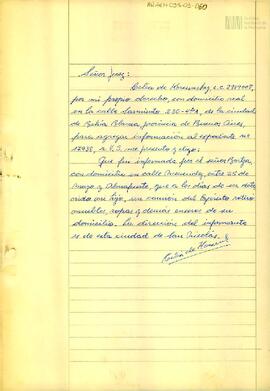 Señor Juez:
Celia de Korsunsky, L.C. 2789008,
por mi propio derecho, con domicilio real
en la calle Sarmiento 230-4ºA, de la ciudad
de Bahía Blanca, provincia de Buenos Aires,
para agregar información al expediente nº
12938, a V.S. me presento y digo:
Que fui informada por el señor
con domicilio en calle entre 25 de
Mayo y Almafuerte, que a los días de ser dete
nido mi hijo, un camión del Ejército retiró
muebles, ropas y demás enseres de su
domicilio. La dirección del informante
es de esta ciudad de San Nicolás.
Celia de